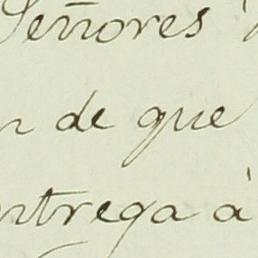 Señores
n de que
ntrega à